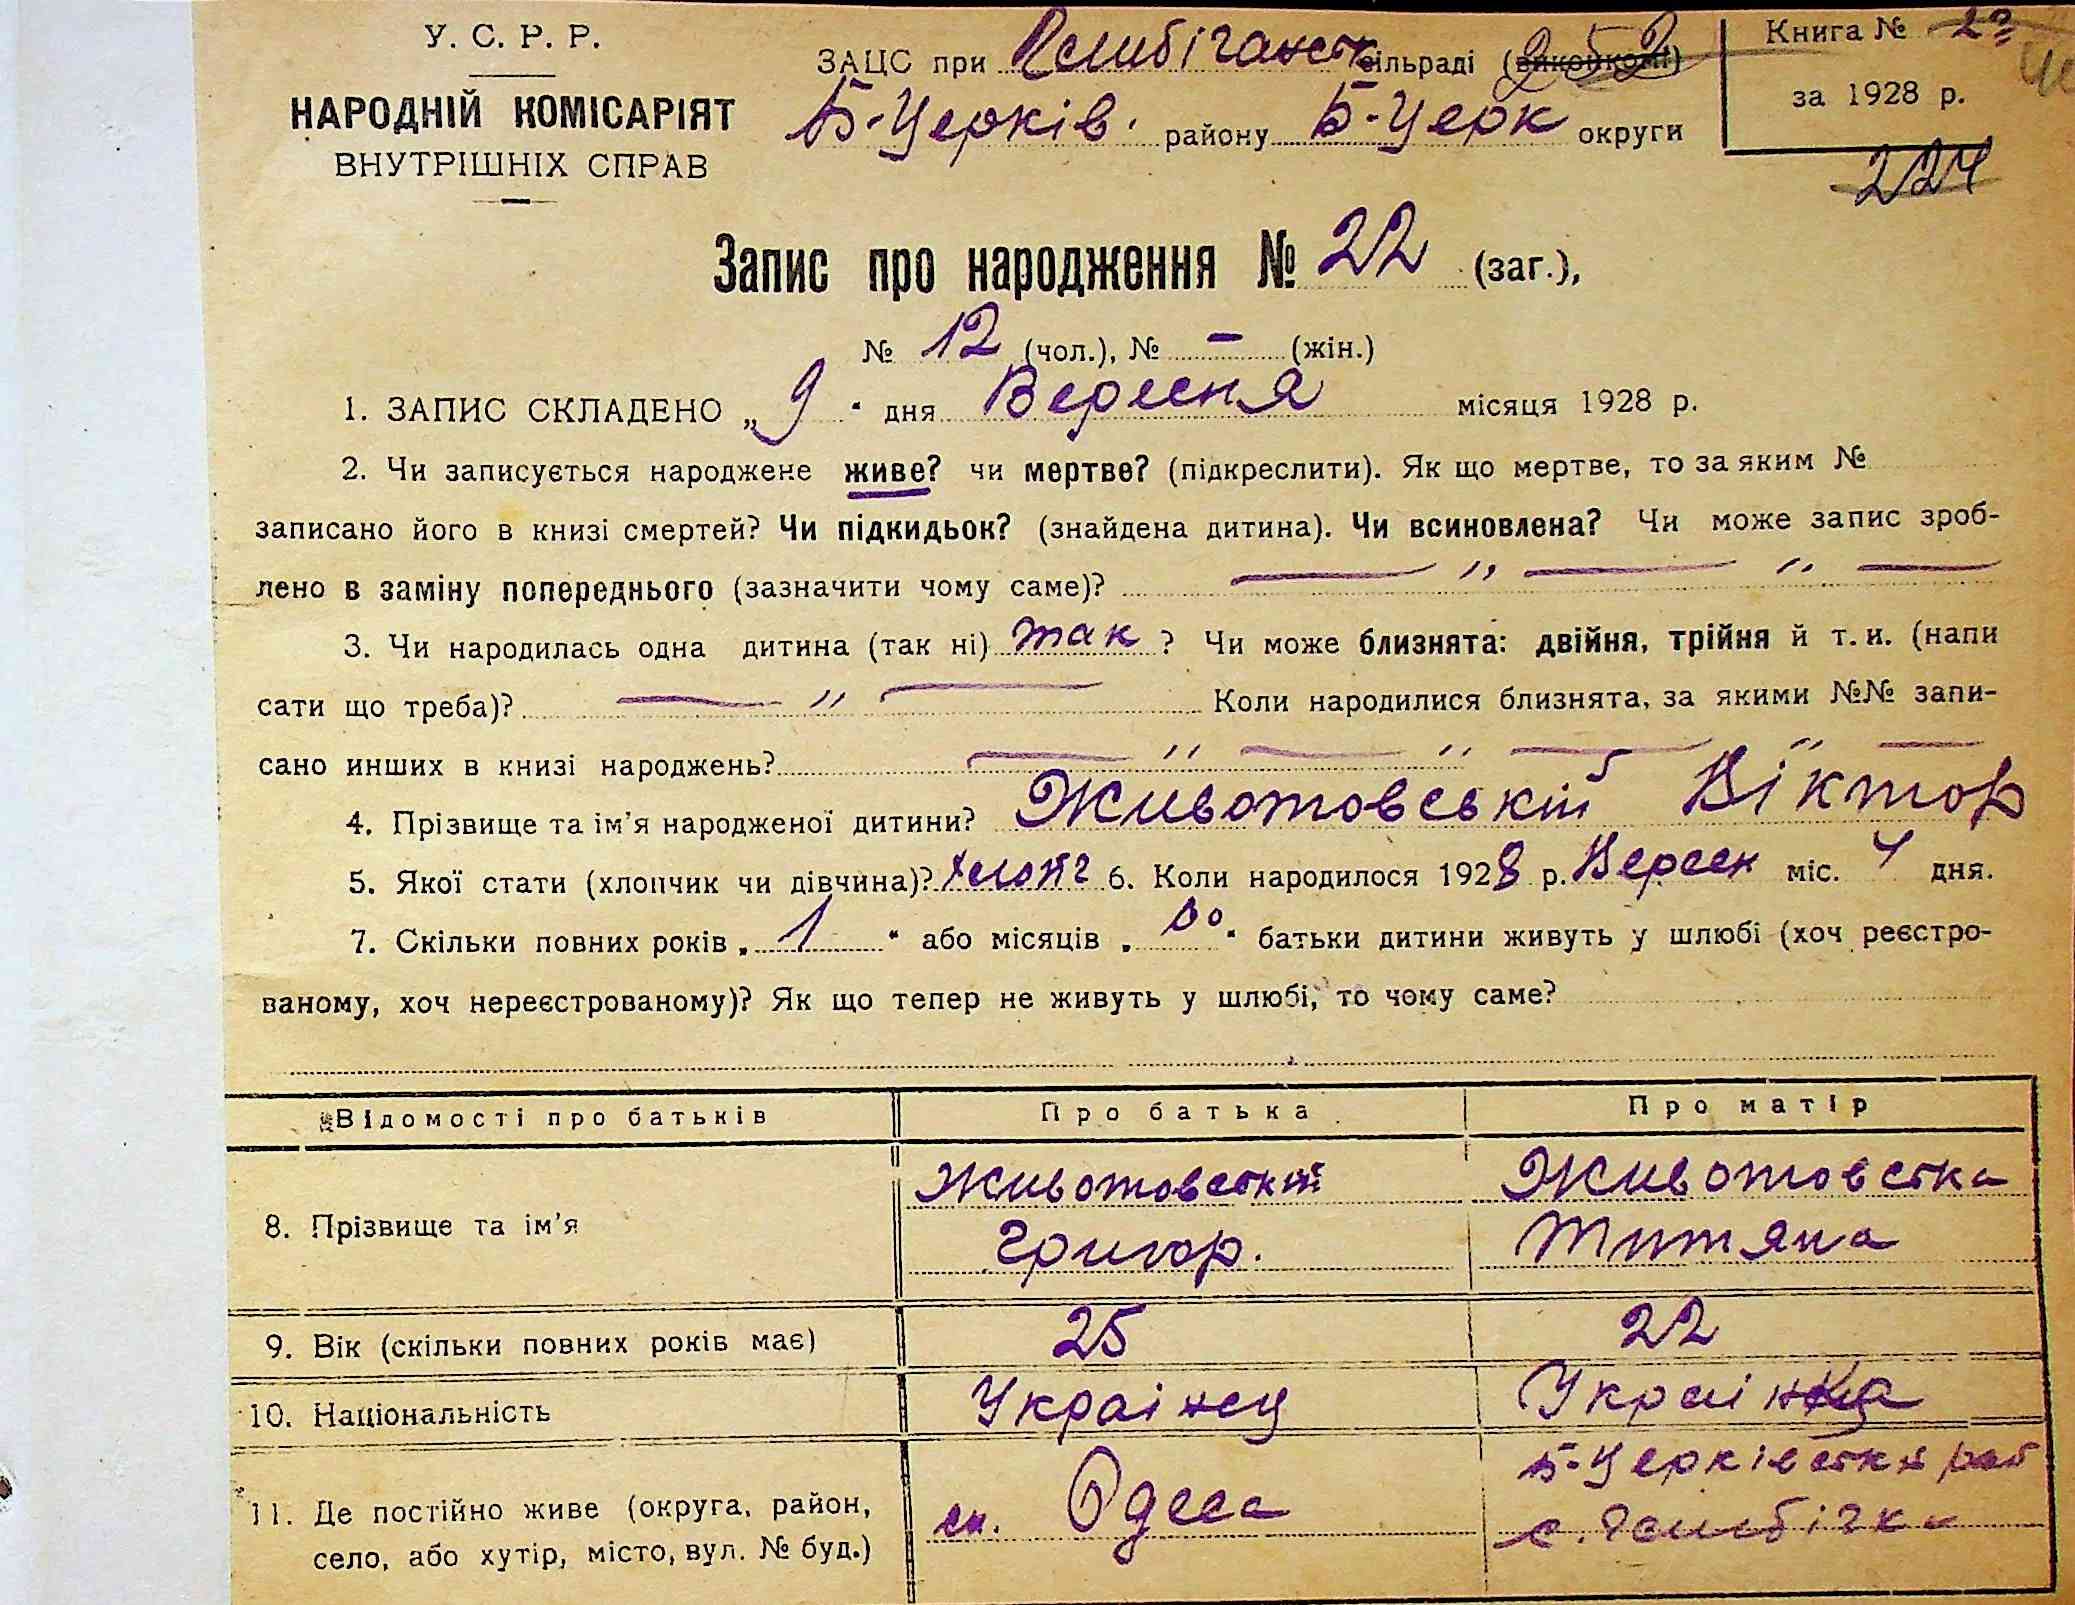 У. С. Р. Р.
НАРОДНІЙ КОМІСАРІЯТ
ВНУТРІШНІХ СПРАВ
ЗАЦС при сільраді (виконкомі) 252
Б-Церків. району Б-Церк округи
Книга №
за 1928 р.
224
Запис про народження № 22 (заг.),
№ 12 (чол.), № – (жін.)
1. ЗАПИС СКЛАДЕНО „ 9 " дня Вересня місяця 1928 р.
2. Чи записується народжене живе? чи мертве? (підкреслити). Як що мертве, то за яким №
записано його в книзі смертей? Чи підкидьок? (знайдена дитина). Чи всиновлена? Чи може запис зроб-
лено в заміну попереднього (зазначити чому саме)? — „ — „ —
3. Чи народилась одна дитина (так ні) так ? Чи може близнята: двійня, трійня й т. и. (напи
сати що треба)? — „ — Коли народилися близнята, за якими №№ запи-
сано инших в книзі народжень? — „ — „ — „ —
4. Прізвище та ім'я народженої дитини? Животовський Віктор
5. Якої стати (хлопчик чи дівчина)? хлопч 6. Коли народилося 1928 р. Вересн міс. 4 дня.
7. Скільки повних років „ 1 " або місяців „ 00 " батьки дитини живуть у шлюбі (хоч реєстро-
ваному, хоч нереєстрованому)? Як що тепер не живуть у шлюбі, то чому саме?
Відомості про батьків Про батька Про матір
8. Прізвище та ім'я
Животовський Животовска
Григор. Титяна
9. Вік (скільки повних років має) 25 22
10. Національність Українец Українка
11. Де постійно живе (округа, район,
село, або хутір, місто, вул. № буд.)
Одеса
Б-Церківский рай
с.